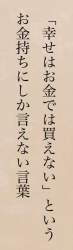 「幸せはお金では買えない」という
お金持ちにしか言えない言葉